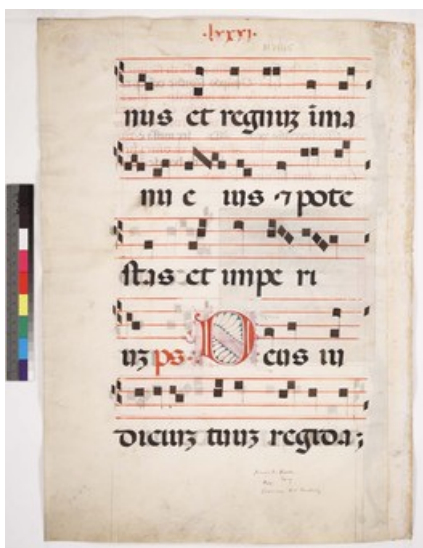 ·lxxxi·
nus et regnuʒ i̅ma
nu e ius ⁊ pote
stas et impe ri
uʒ ps Deus iu
diciuʒ tuuʒ regi da;